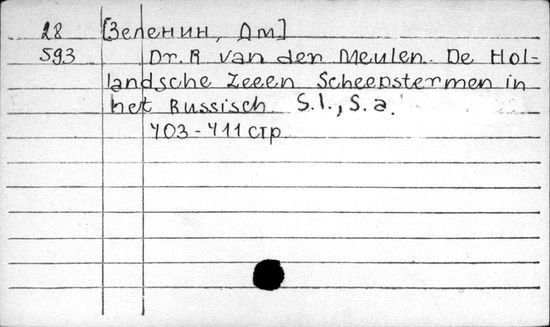 28 [Зеленин, Дм]
593 Dr. R van den Meulen. De Hol-
landsche Zeeen Scheepstermen in
het Russisch S.l., S.a.
403-411 стр